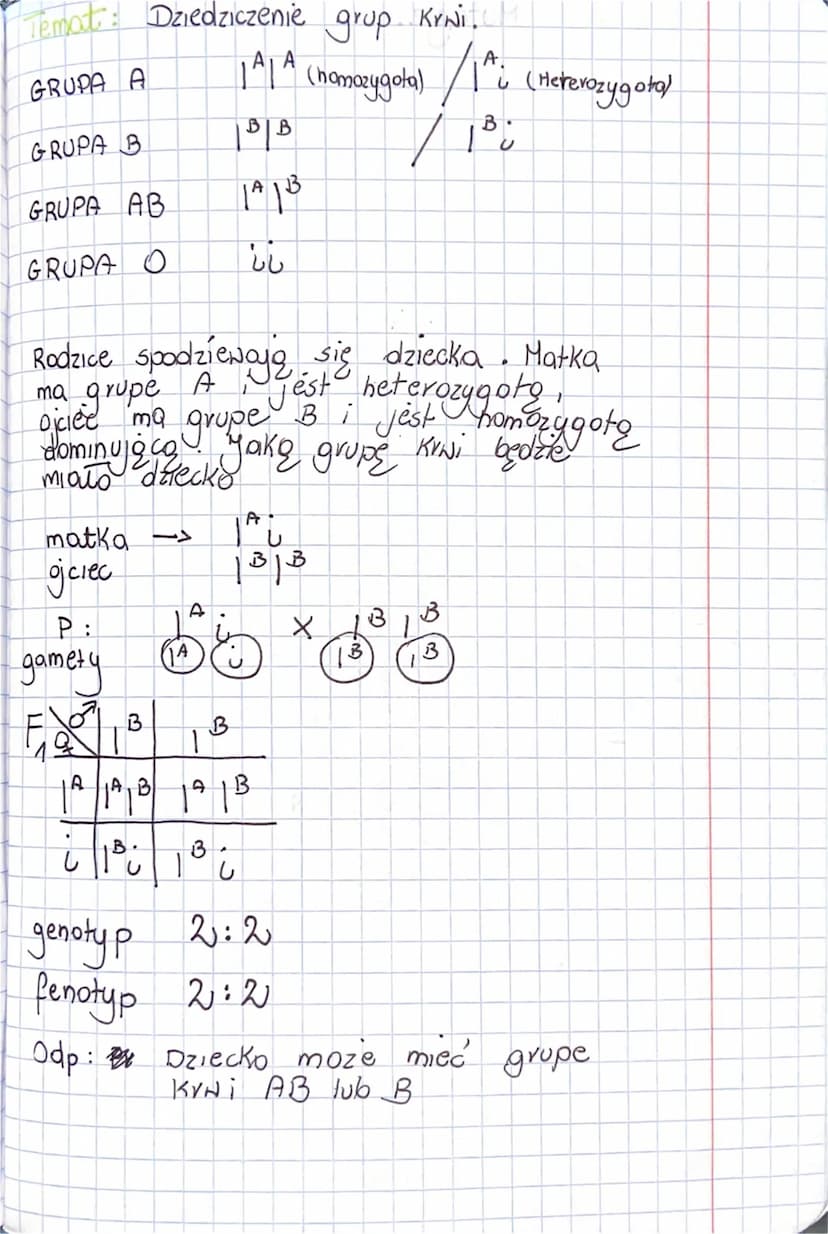 Temat: Dziedziczenie grup krwi.
GRUPA A I^A I^A (homozygota) / I^A i (Heterozygota)
GRUPA B I^B I^B / I^B i
GRUPA AB I^A I^B
GRUPA O ii
Rodzice spodziewają się dziecka. Matka
ma grupe A i jest heterozygotą,
ojciec ma grupe B i jest homozygotą
dominującą. Jaką grupę krwi będzie
miało dziecko
matka → I^A i
ojciec I^B I^B
P: I^A i X I^B I^B
gamety I^A i I^B I^B
F1 ♀ ♂ I^B I^B
I^A I^A I^B I^A I^B
i I^B i I^B i
genotyp 2:2
fenotyp 2:2
Odp: Dziecko może mieć grupe
krwi AB lub B